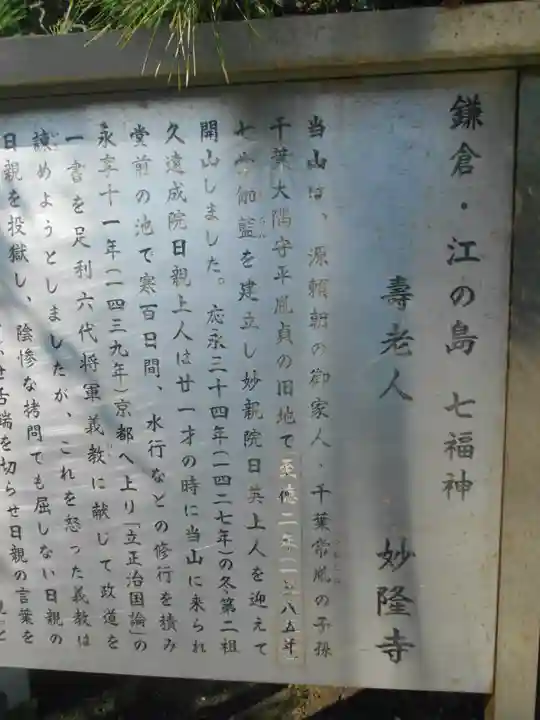 鎌倉・江の島 七福神
壽老人 妙隆寺
当山は、源頼朝の御家人・千葉常胤の子孫
千葉大隅守平胤貞の旧地で至徳二年(一三八五年)
七堂伽藍を建立し妙親院日英上人を迎えて
開山しました。応永三十四年(一四二七年)の冬第二祖
久遠成院日親上人は廿一才の時に当山に来られ
堂前の池で寒百日間、水行などの修行を積み
永享十一年(一四三九年)京都へ上り「立正治国論」の
一書を足利六代将軍義教に献じて政道を
諌めようとしましたが、これを怒った義教は
日親を投獄し、陰惨な拷問でも屈しない日親の
舌端を切らせ日親の言葉を